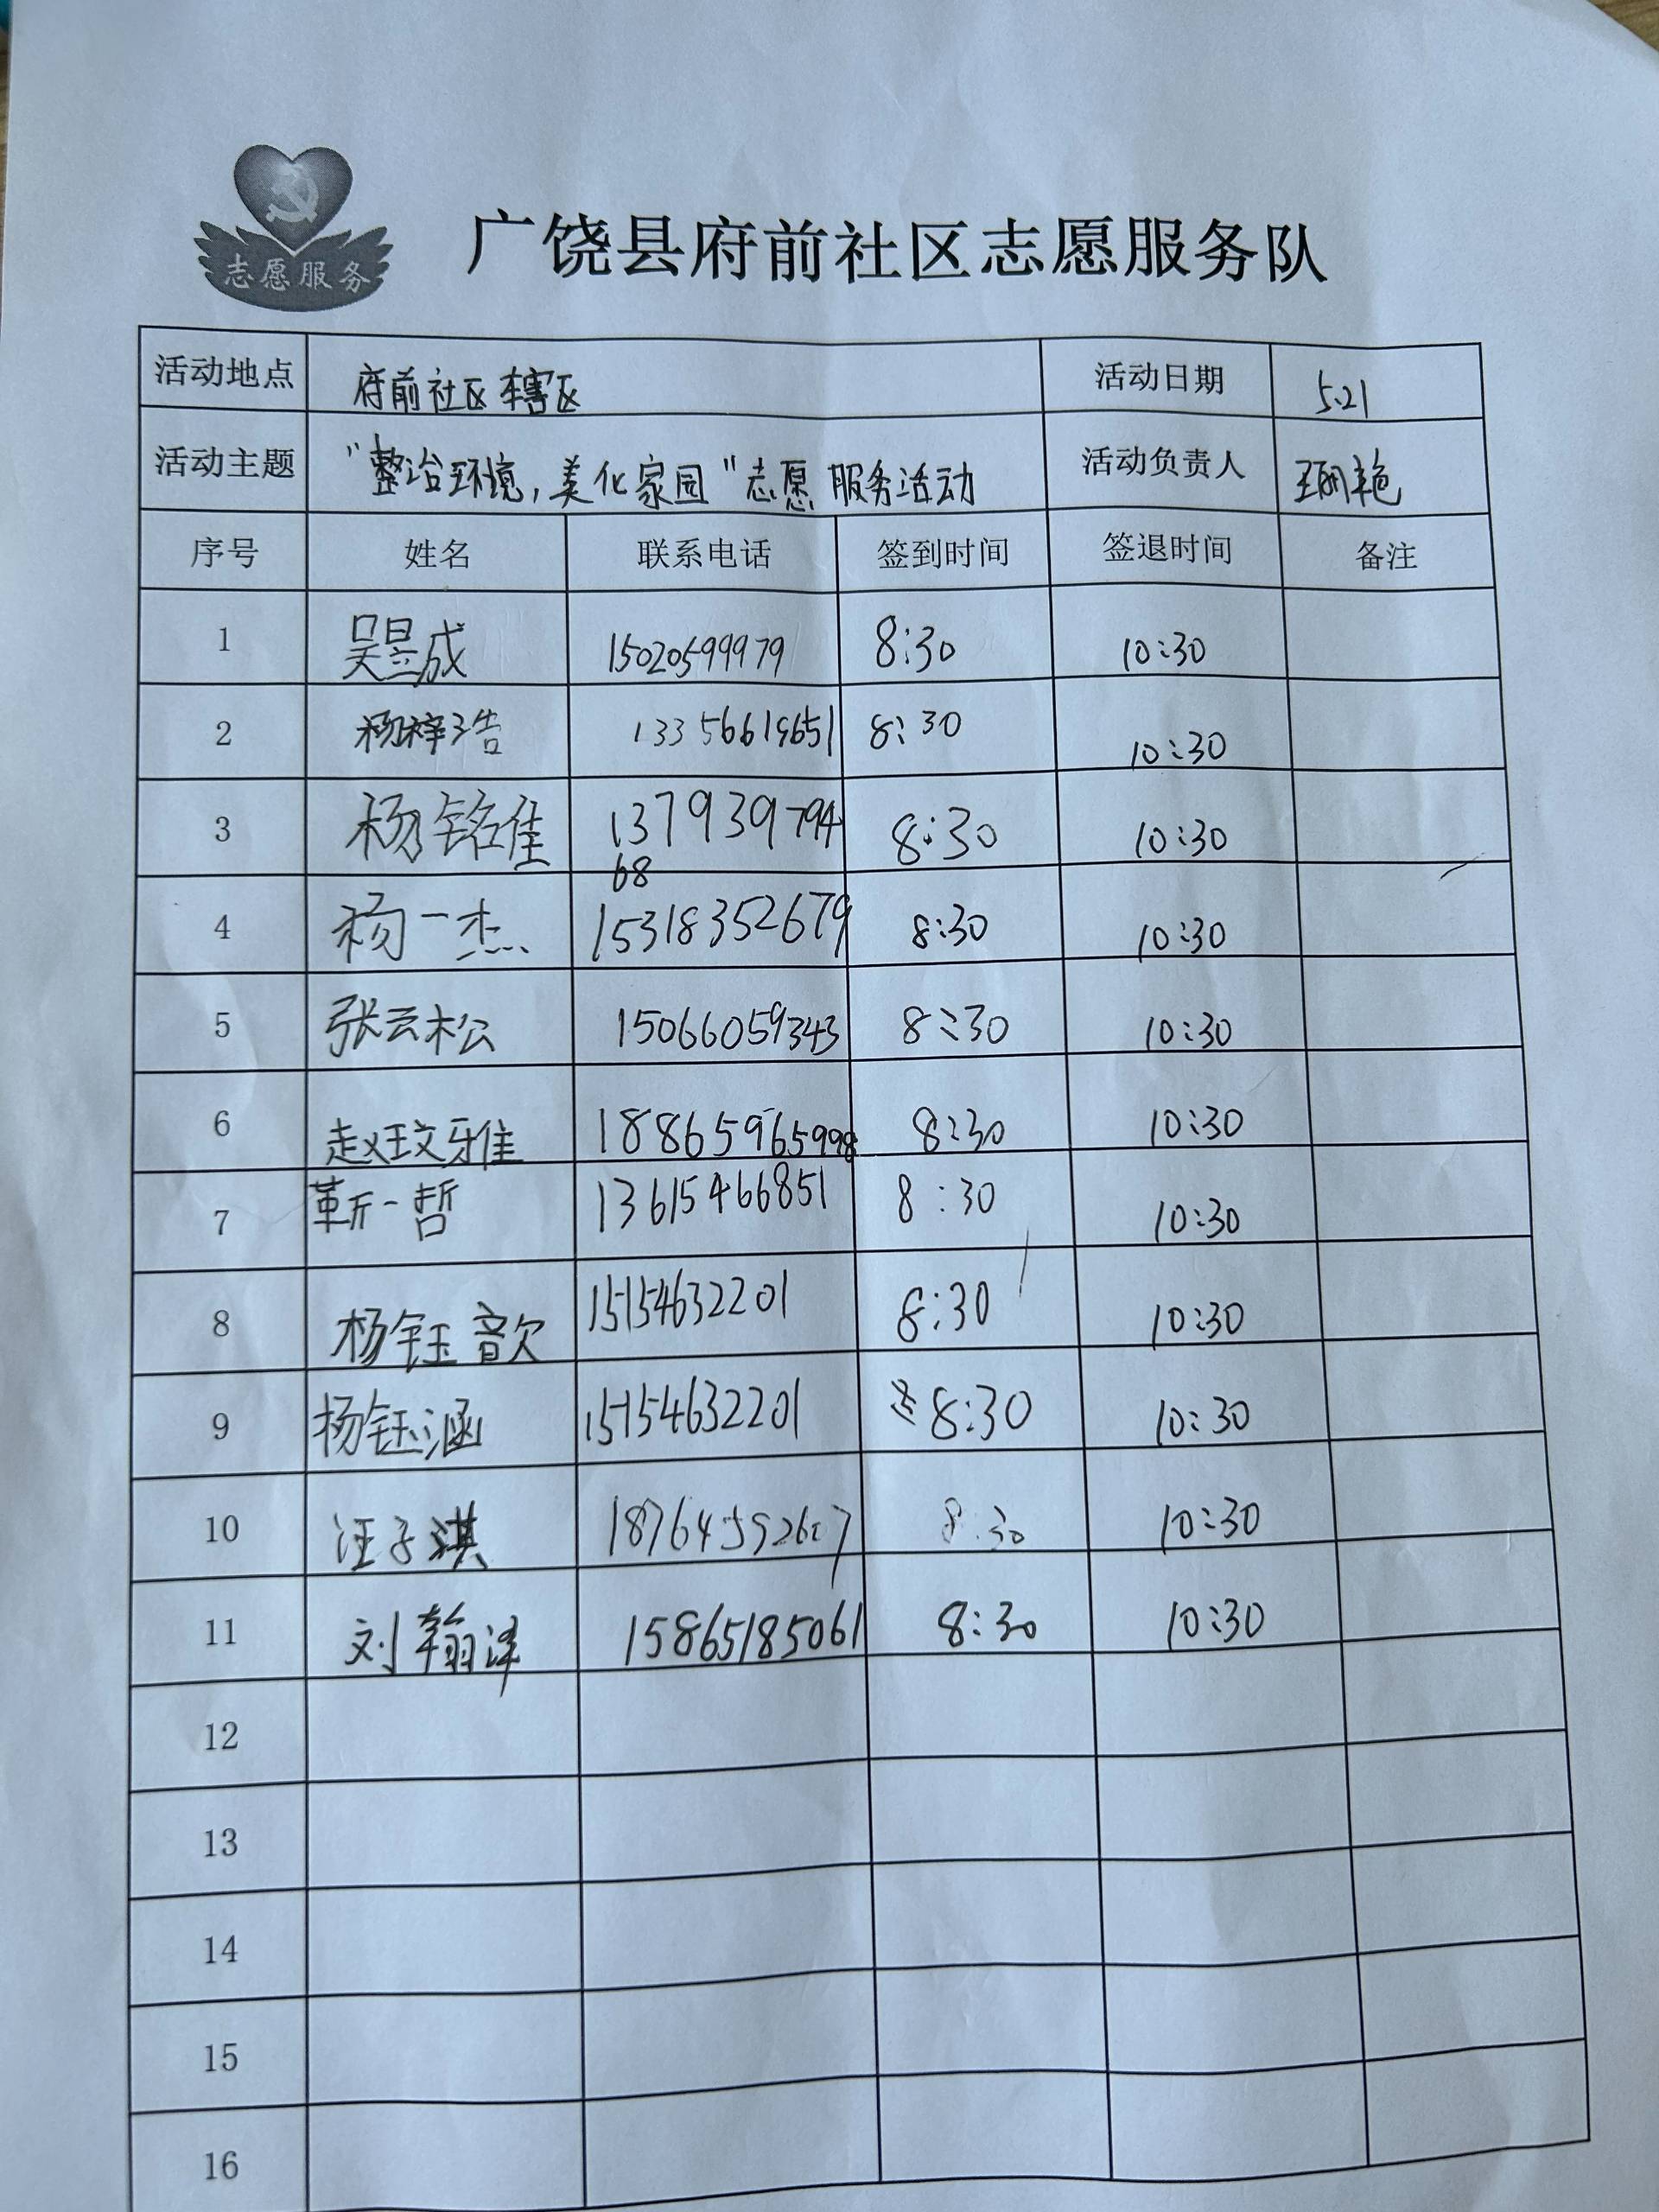 志愿服务
广饶县府前社区志愿服务队
活动地点 府前社区辖区 活动日期 5.21
活动主题 "整治环境,美化家园"志愿服务活动 活动负责人
序号 姓名 联系电话 签到时间 签退时间 备注
1 吴昱成 15020599979 8:30 10:30
2 杨梓浩 8:30 10:30
3 杨铭佳 13793979468 8:30 10:30
4 杨一杰 15318352679 8:30 10:30
5 张云松 15066059343 8:30 10:30
6 赵玟雅 18865965998 8:30 10:30
7 靳一哲 13615466851 8:30 10:30
8 杨钰歆 15154632201 8:30 10:30
9 杨钰涵 15154632201 8:30 10:30
10 汪子淇 8:30 10:30
11 刘翰泽 15865185061 8:30 10:30
12
13
14
15
16